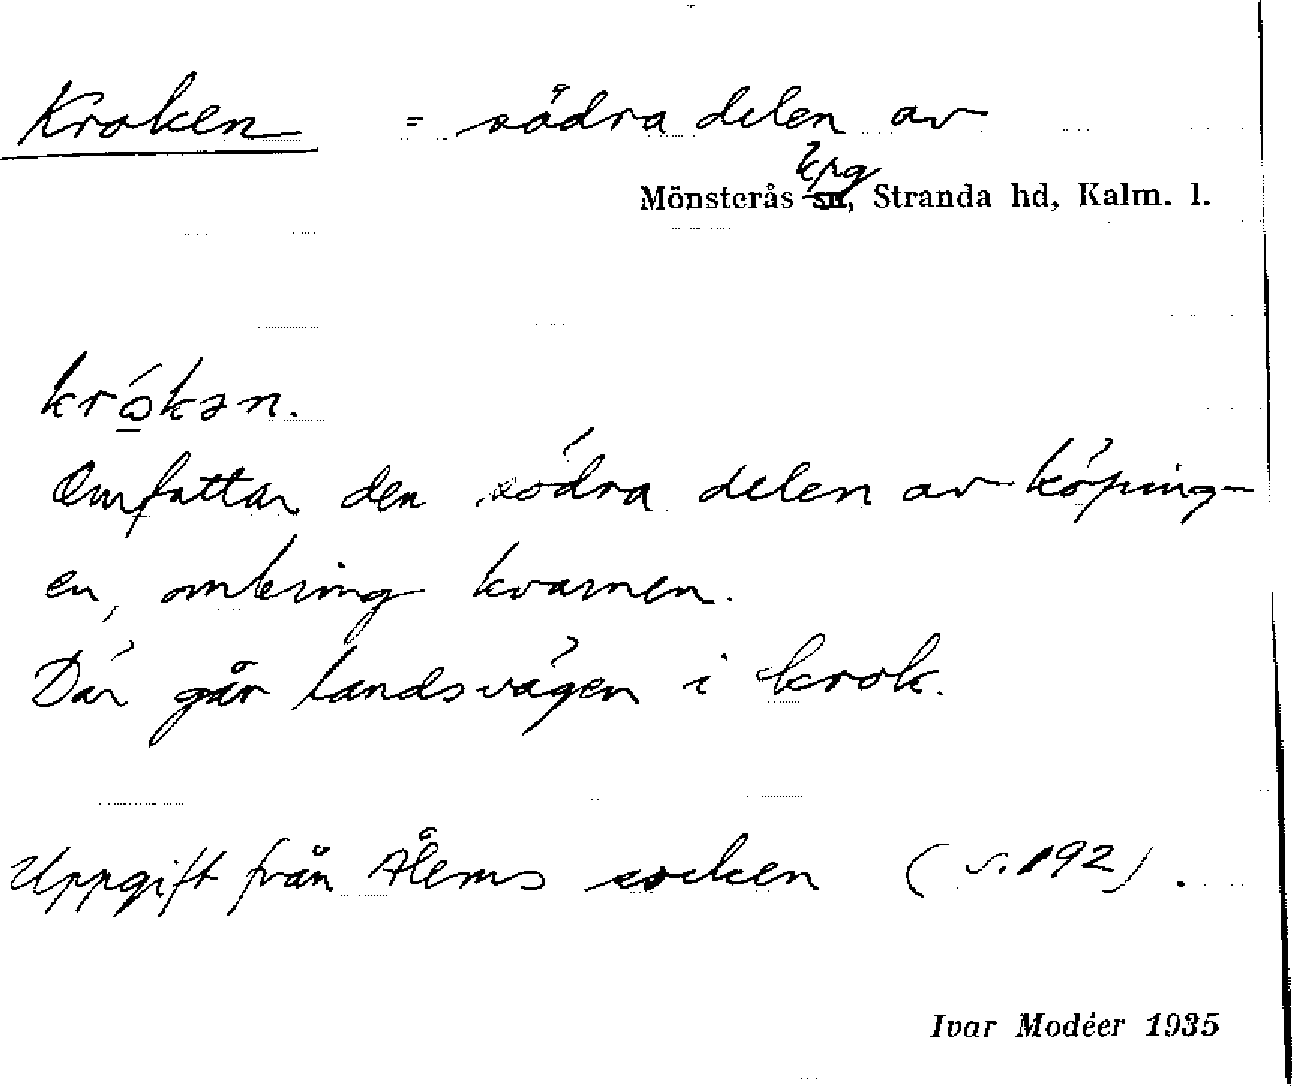 Kroken = södra delen av
kpg
Mönsterås sn, Stranda hd, Kalm. l.
kró̱kən.
Omfattar den södra delen av köping-
en, omkring kvarnen.
Där går landsvägen i krok.
Uppgift från Ålems socken (s. 192).
Ivar Modéer 1935